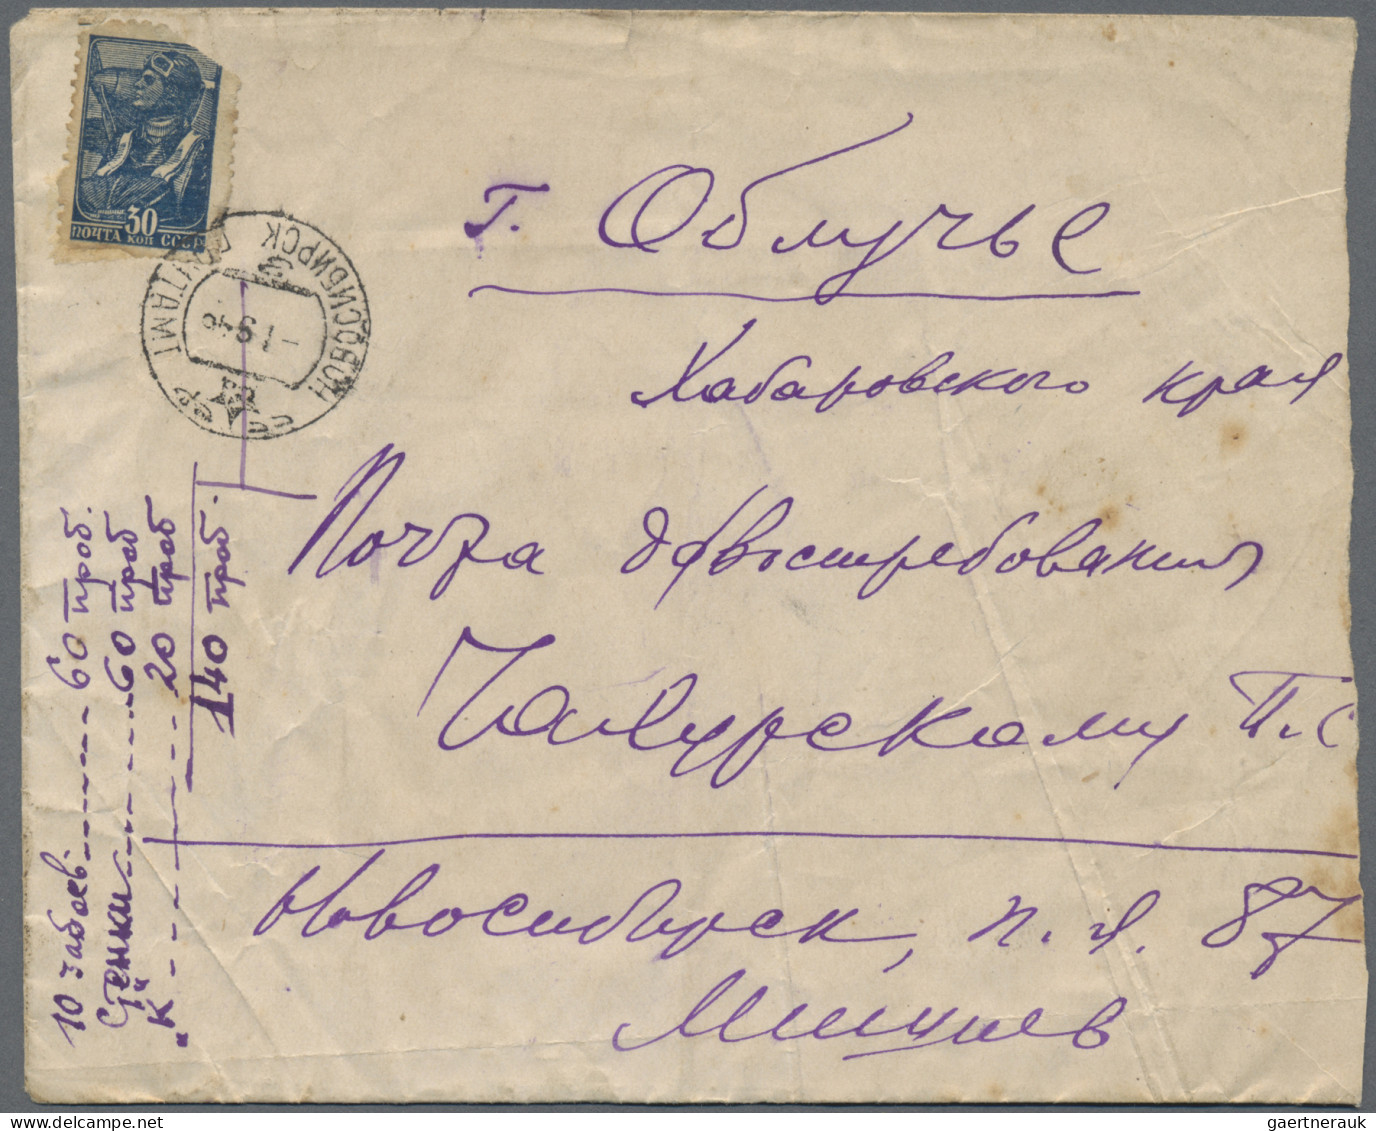 30
ПОЧТА КОП СССР
НОВОСИБИРСК ПОЧТАМТ
СССР
г. Облучье
Хабаровского края
Почта д/востребования
П.С
Новосибирск, п. я. 87
10 забоев 60 проб.
Стенки 60 проб
"К" 20 проб
140 проб.
gaertnerauk